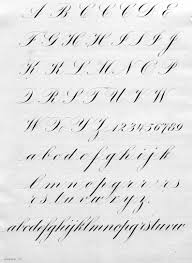 A B C C C D E
F G H H I J
K L L M N O P
Q R S T U V W
W X Y Z 1 2 3 4 5 6 7 8 9
a b c d e f g h i j k
l m n o p q r r s
r s t u v w x y z.
abcdefghijklmnopqrstuvw